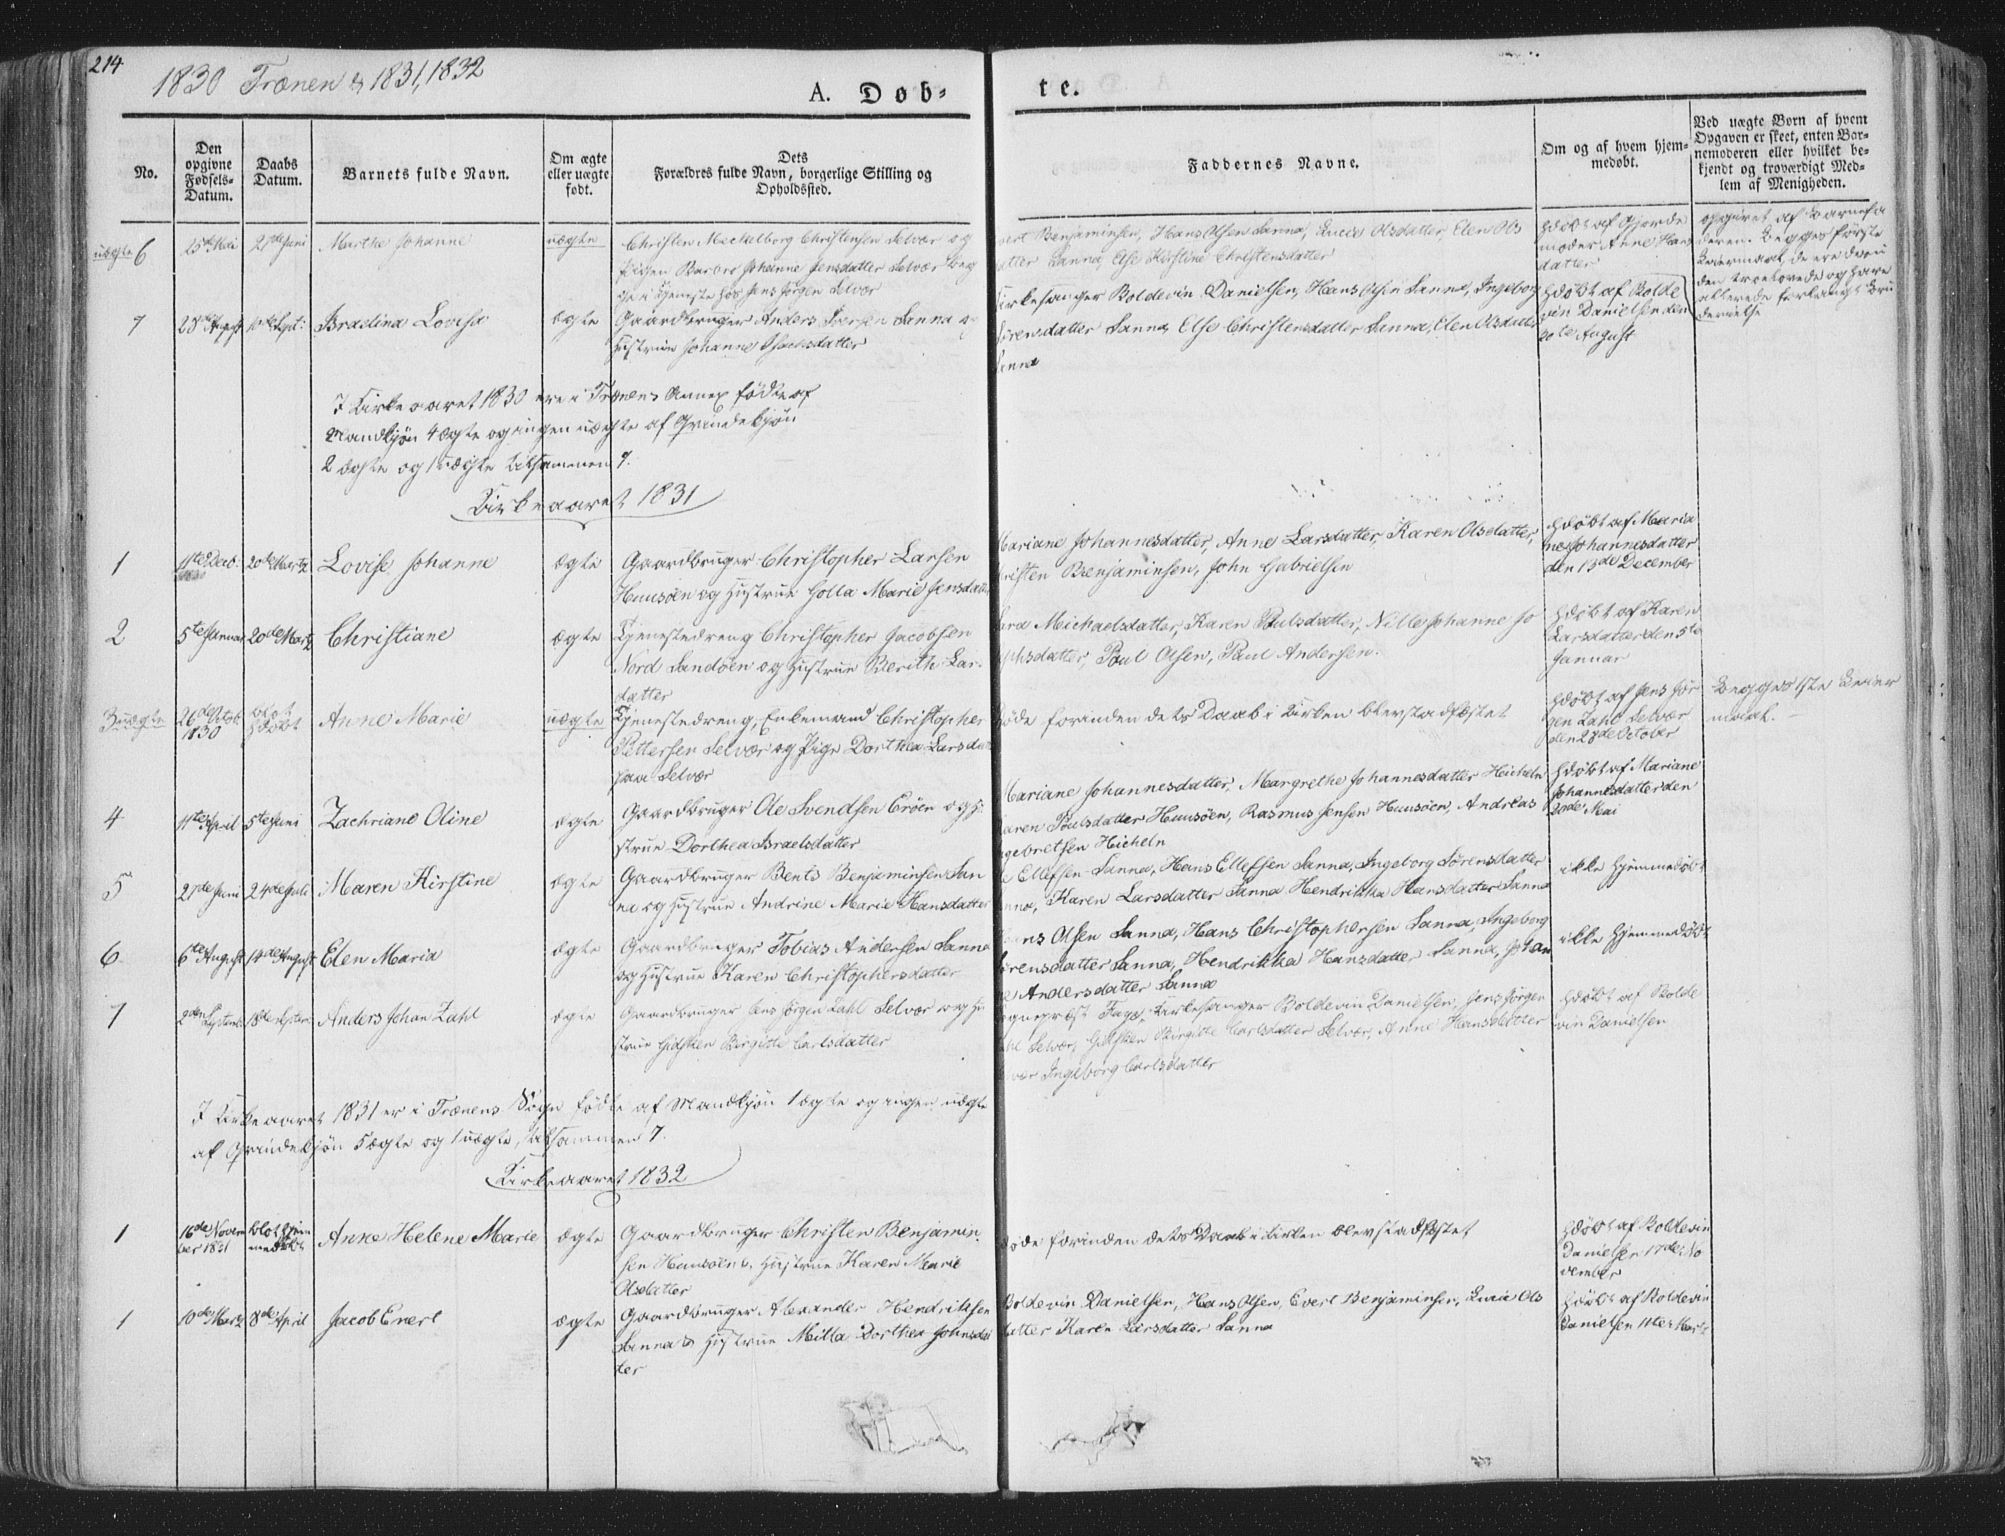 214
1830 Trænen & 1831, 1832
A. Døb-
te.
No.
Den opgivne Fødsels-Datum.
Daabs Datum.
Barnets fulde Navn.
Om ægte eller uægte født.
Dets Forældres fulde Navn, borgerlige Stilling og Opholdssted.
Faddernes Navne.
Om og af hvem hjemmedøbt.
Ved uægte Børn af hvem Opgaven er skeet, enten Barnemoderen eller hvilket bekjendt og troværdigt Medlem af Menigheden.
uægte 6
25de Mai
21de Juni
Marthe Johanne
uægte
Christen Meckelborg Christensen Selvær og
Pigen Barbro Johanne Jensdatter Selvær beg
ge i Tjeneste hos Jens Jørgen Selvær
Benjaminsen, Hans Olsen Sanna, Lucie Olsdatter, Elen Ols
datter Sanna, Else Kirstine Christensdatter
hdøbt af Gjorde
moder Anne Hans
datter
opgivet af Barnefa
deren. Begges første
Leiermaal, de ere des
den troelovede og have
allerede forlangt Bru
devielse
7
28de August
10de Sept:
Israelina Lovise
ægte
Gaardbruger Anders Iversen Sanna og
Hustrue Johanne Isachsdatter
Kirkesanger Boldevin Danielsen, Hans Olsen Sanna, Ingeborg
Sørensdatter Sanna, Else Christensdatter Sanna, Elen Olsdatter
Sanna
hdøbt af Bolde
vin Danielsen den
August
I Kirkeaaret 1830 ere i Trænens Annex fødte af
Mandkjøn 4 ægte og ingen uægte af Qvindekjøn
2 ægte og 1 uægte tilsammen 7.
Kirkeaaret 1831
1
11te Decb.
20de Martz
Lovise Johanne
ægte
Gaardbruger Christopher Larsen
Huusøen og Hustrue Golla Marie Jensdatter
Mariane Johannesdatter, Anne Larsdatter, Karen Olsdatter,
Christen Benjaminsen, John Gabrielsen
hdøbt af Maria
ne Johannesdatter
den 13de December
2
5te Januar
20de Martz
Christiane
ægte
Tjenestedreng Christopher Jacobsen
Nord Sandøen og Hustrue Berith Lars
datter
Michaelsdatter, Karen Poulsdatter, Nille Johanne Jo
sephsdatter, Poul Olsen, Paul Andersen.
hdøbt af Karen
Larsdatter den 5te
Januar
3 uægte
26de Octob.
1830
blot
hdøbt
Anne Marie
uægte
Tjenestedreng, Enkemand Christopher
Pettersen Selvær og Pige Dorthea Larsdatter
paa Selvær
Døde forinden dets Daab i Kirken blev stadfæstet
hdøbt af Jens Jør
gen Zahl Selvær
den 28de October
Begges 1ste Leier
maal. —
4
11te April
5te Juni
Zachriane Oline
ægte
Gaardbruger Ole Svendsen Erøen og H
strue Dorthea Israelsdatter
Mariane Johannesdatter, Margrethe Johannesdatter Hicheln
Karen Poulsdatter Huusøen, Rasmus Jensen Huusøen, Andreas
Ingebretsen Hicheln
hdøbt af Mariane
Johannesdatter den
20de Mai
5
21de Juni
24de Juli
Maren Kirstine
ægte
Gaardbruger Bents Benjaminsen San
na og Hustrue Andrine Marie Hansdatter
Ellefsen Sanna, Hans Ellefsen Sanna, Ingeborg Sørensdatter
Sanna, Karen Larsdatter Sanna Hendrikka Hansdatter Sanna
ikke hjemmedøbt
6
6te August
14de August
Elen Maria
ægte
Gaardbruger Tobias Andersen Sanna
og Hustrue Karen Christophersdatter
Hans Olsen Sanna, Hans Christophersen Sanna, Ingeborg
Sørensdatter Sanna, Hendrikka Hansdatter Sanna, Johan
ne Andersdatter Sanna
ikke hjemmedøbt
7
2den Septemb.
18de Septemb.
Anders Johan Zahl
ægte
Gaardbruger Jens Jørgen Zahl Selvær og Hu
strue Gidsken Birgitte Carlsdatter
Sognepræst Kirkesanger Boldevin Danielsen, Jens Jørgen
Zahl Selvær, Gidsken Birgitte Carlsdatter Selvær, Anne Hansdatter
Selvær Ingeborg Carlsdatter
hdøbt af Bolde
vin Danielsen
I Kirkeaaret 1831 er i Trænens Sogn fødte af Mandkjøn 1 ægte og ingen uægte
af Qvindekjøn 5 ægte og 1 uægte, tilsammen 7.
Kirkeaaret 1832
1
16de Novem
ber 1831
blot hjem
medøbt
Anne Helene Marie
ægte
Gaardbruger Christen Benjamin
sen Huusøen & Hustrue Karen Marie
Olsdatter
Døde forinden dets Daab i Kirken blev stadfæstet
hdøbt af Boldevin
Danielsen 17de No
vember
1
10de Martz
8de April
Jacob Evert
ægte
Gaardbruger Alexander Hendriksen
Sanna & Hustrue Milla Dorthea Johnsdat
ter
Boldevin Danielsen, Hans Olsen, Evert Benjaminsen, Lucie Ols
datter Karen Larsdatter Sanna
hdøbt af Boldevin
Danielsen 11te Martz